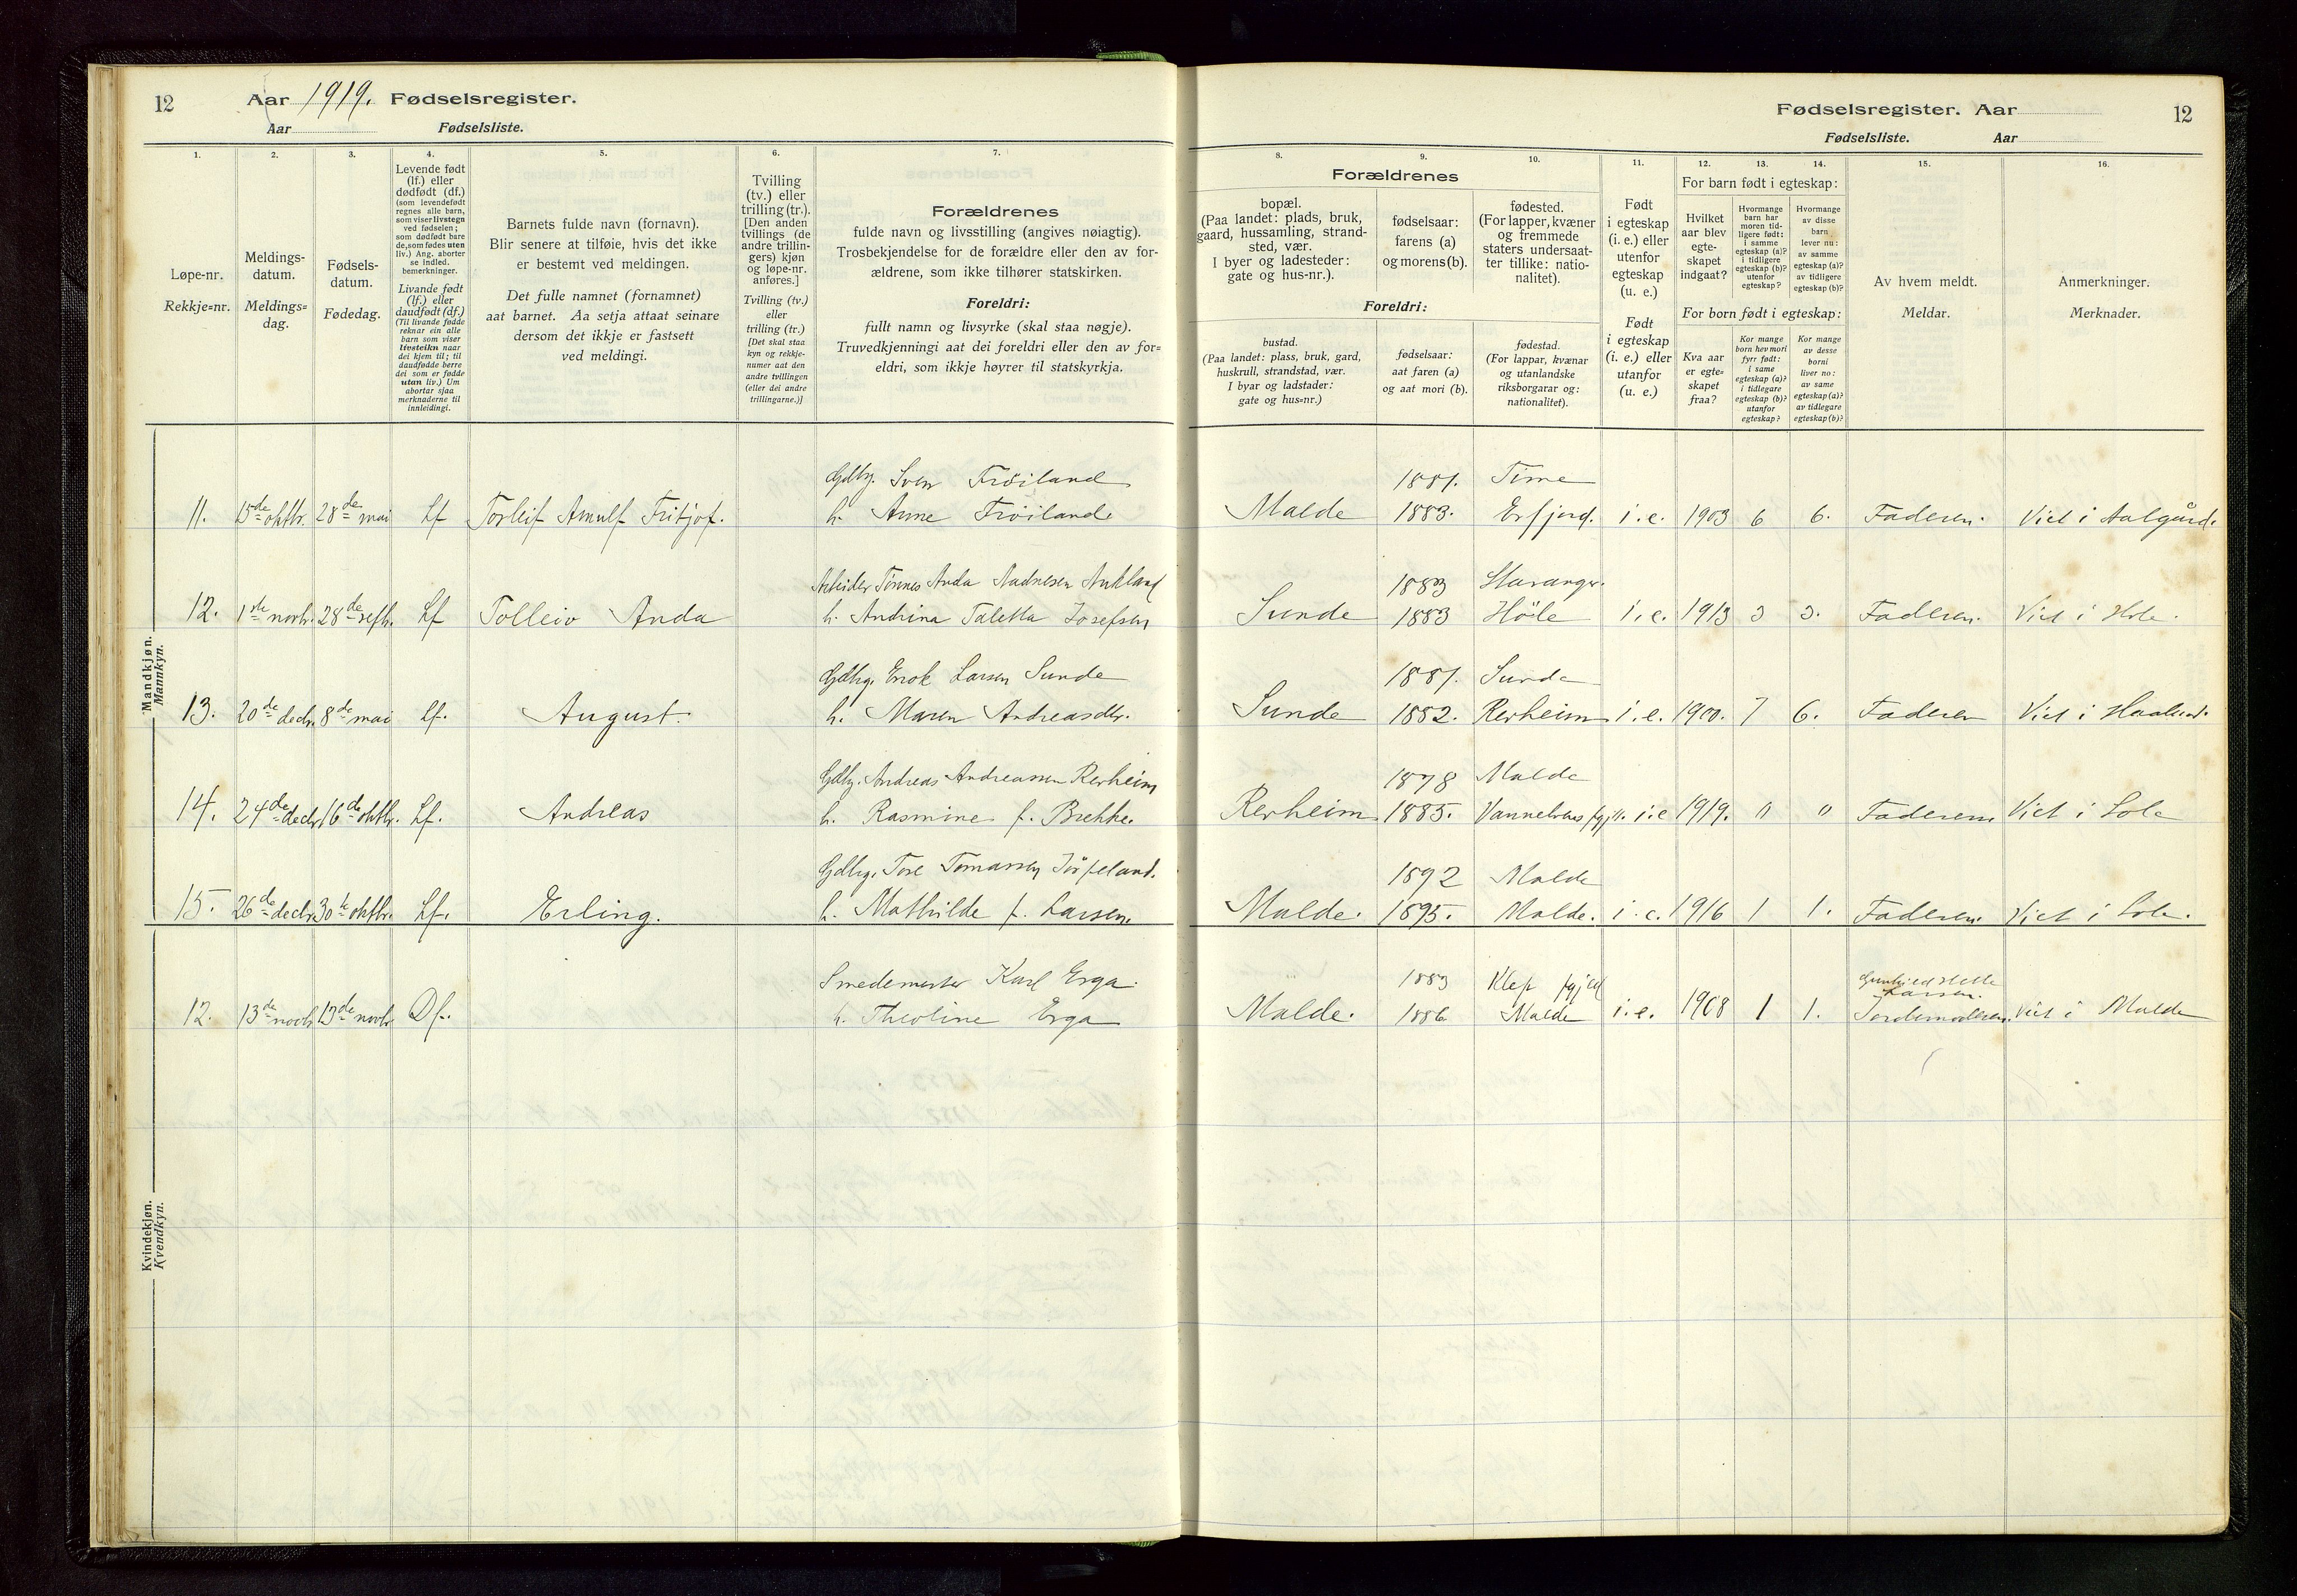 12 Aar 1919. Fødselsregister.
Aar Fødselsliste.
Fødselsregister. Aar 12
Fødselsliste. Aar
1. 2. 3. 4. 5. 6. 7.
Løpe-nr.
Rekkje=nr.
Meldings-
datum.
Meldings=
dag.
Fødsels-
datum.
Fødedag.
Levende født
(lf.) eller
dødfødt (df.)
(som levendefødt
regnes alle barn,
som viser livstegn
ved fødselen;
som dødfødt bare
de, som fødes uten
liv.) Ang. aborter
se indled.
bemerkninger.
Livande født
(lf.) eller
daudfødt (df.)
(Til livande fødde
reknar ein alle
barn som viser
livsteikn naar
dei kjem til; til
daudfødde berre
dei som er fødde
utan liv.) Um
abortar sjaa
merknaderne til
innleidingi.
Barnets fulde navn (fornavn).
Blir senere at tilføie, hvis det ikke
er bestemt ved meldingen.
Det fulle namnet (fornamnet)
aat barnet. Aa setja attaat seinare
dersom det ikkje er fastsett
ved meldingi.
Tvilling
(tv.) eller
trilling (tr.).
[Den anden
tvillings (de
andre trillin-
gers) kjøn
og løpe-nr.
anføres.]
Tvilling (tv.)
eller
trilling (tr.)
[Det skal staa
kyn og rekkje-
numer aat den
andre tvillingen
(eller dei andre
trillingarne.)]
Forældrenes
fulde navn og livsstilling (angives nøiagtig).
Trosbekjendelse for de forældre eller den av for-
ældrene, som ikke tilhører statskirken.
Foreldri:
fullt namn og livsyrke (skal staa nøgje).
Truvedkjenningi aat dei foreldri eller den av for=
eldri, som ikkje høyrer til statskyrkja.
8. 9. 10. 11. 12. 13. 14. 15. 16.
Forældrenes
bopæl.
(Paa landet: plads, bruk,
gaard, hussamling, strand-
sted, vær.
I byer og ladesteder:
gate og hus-nr.).
fødselsaar:
farens (a)
og morens (b).
fødested.
(For lapper, kvæner
og fremmede
staters undersaat-
ter tillike: natio-
nalitet).
Foreldri:
bustad.
(Paa landet: plass, bruk, gard,
huskrull, strandstad, vær.
I byar og ladstader:
gate og hus=nr.)
fødselsaar:
aat faren (a)
og aat mori (b).
fødestad.
(For lappar, kvænar
og utanlandske
riksborgarar og:
nationalitet).
Født
i egteskap
(i. e.) eller
utenfor
egteskap
(u. e.)
Født
i egteskap
(i. e.) eller
utanfor
(u. e.)
For barn født i egteskap:
Hvilket
aar blev
egte-
skapet
indgaat?
Hvormange
barn har
moren tid-
ligere født:
i samme
egteskap (a)?
i tidligere
egteskap (b)?
utenfor
egteskap?
Hvormange
av disse
barn
lever nu:
av samme
egteskap (a)?
av tidligere
egteskap (b)?
For born født i egteskap:
Kva aar
er egte=
skapet
fraa?
Kor mange
born hev mori
fyrr født:
i same
egteskap (a)?
i tidlegare
egteskap (b)?
utanfor
egteskap?
Kor mange
av desse
borni
liver no:
av same
egteskap (a)?
av tidlegare
egteskap (b)?
Av hvem meldt.
Meldar.
Anmerkninger.
Merknader.
Mandkjøn.
Mannkyn.
Gdbg. Sven Frøiland 1881. Time
11. 15de oktbr. 28de mai Lf Torleif Arnulf Fritjof. h. Anne Frøiland Malde 1883. Erfjord. i.e. 1903 6 6. Faderen. Viet i Aalgård.
Arbeider Tønnes Anda Aadnesen Aukland 1883 Stavanger.
12. 1ste novbr. 28de septbr. Lf Tolleiv Anda h. Andrina Taletta Josefsen Sunde 1883 Høle i.e. 1913 3 3. Faderen. Viet i Hole.
Gdbg. Enok Larsen Sunde 1881. Sunde
13. 20de decbr. 8de mai Lf. August. h. Maren Andreasdtr. Sunde 1882. Revheim i.e. 1900. 7 6. Faderen Viet i Haaland.
Gdbg. Andreas Andreassen Revheim 1878 Malde
14. 24de decbr. 16de oktbr. Lf. Andreas h. Rasmine f. Brekke. Revheim 1885. i.e 1919. " " Faderen Viet i Sole
Gdbg. Tore Tomassen Jørpeland. 1892 Malde
15. 26de decbr. 30te oktbr. Lf. Erling. h. Mathilde f. Larsen. Malde. 1895. Malde. i.e. 1916 1 1. Faderen. Viet i Sole.
Kvindekjøn.
Kvendkyn.
Smedemester Karl Erga. 1883 Klep pgjæld Gunhild Helle
Larsen.
12. 13de novbr. 13de novbr. Df. h. Theoline Erga Malde. 1886 Malde i.e. 1908 1 1. Jordemoderen. Viet i Malde